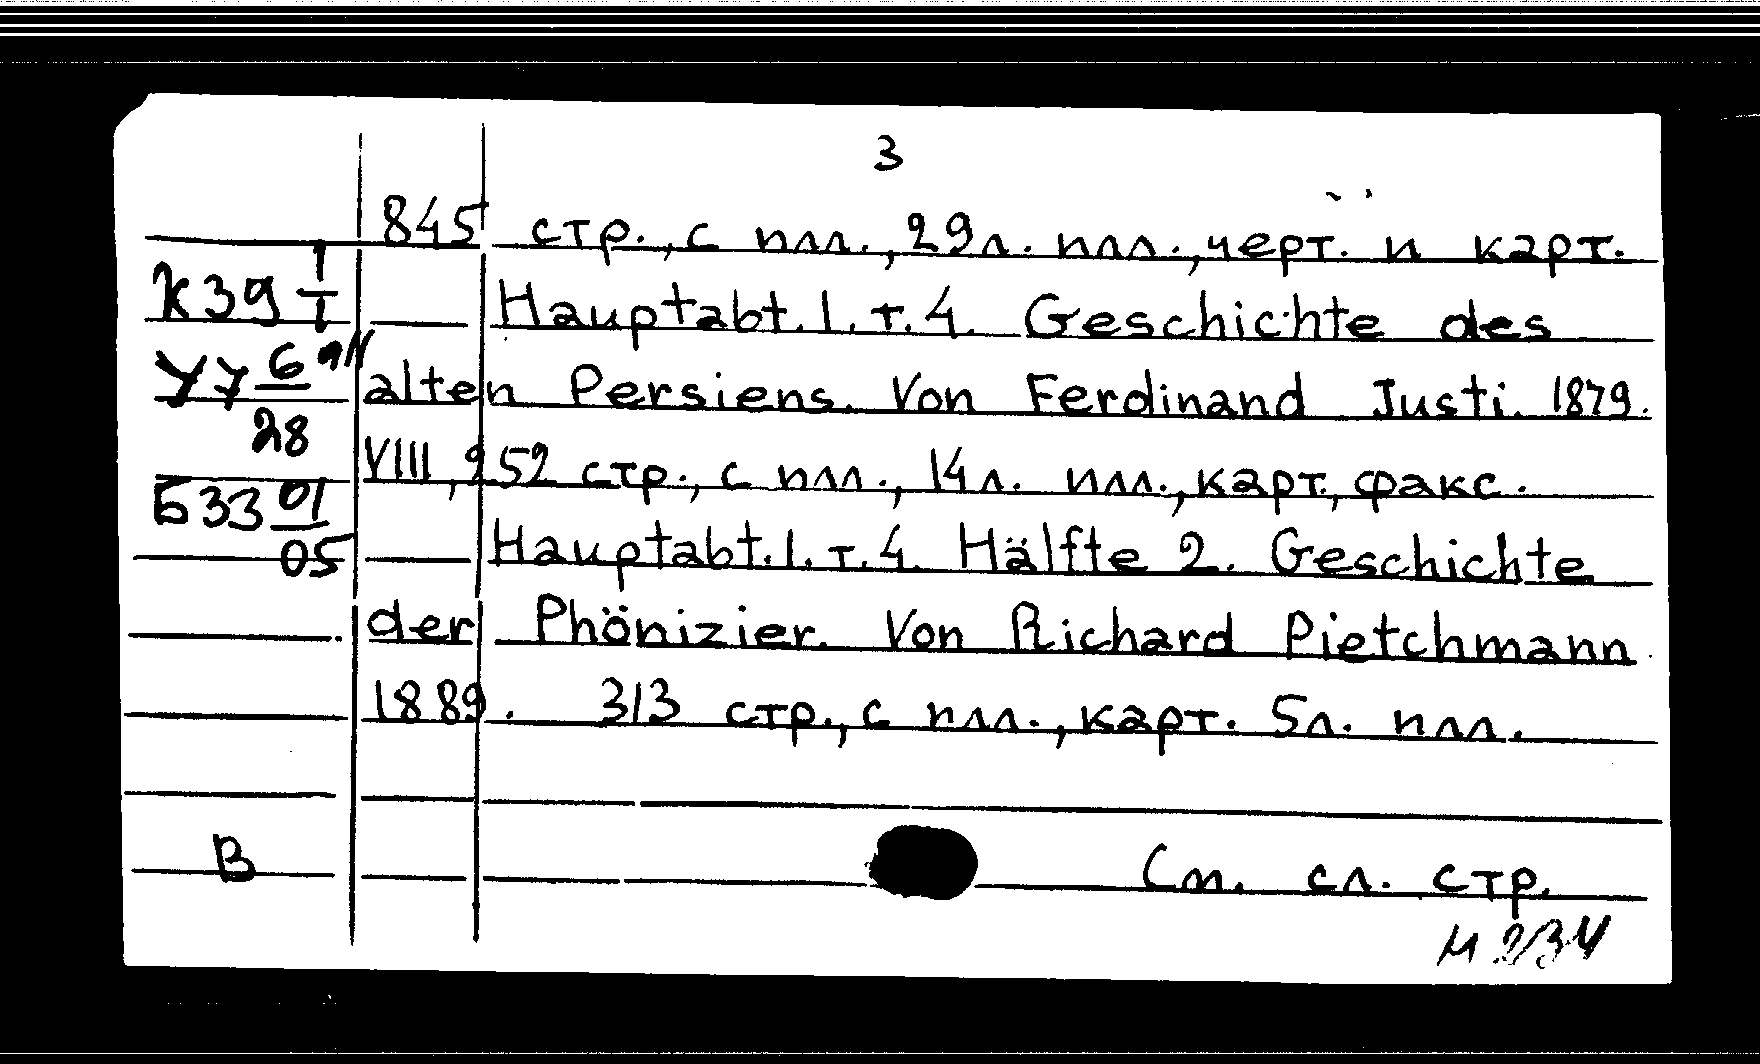 3
845 стр., с илл., 29 л. илл., черт. и карт.
К39 I/I
Hauptabt. I. т. 4. Geschichte des
У7 6/28
alten Persiens. Von Ferdinand Justi. 1879.
VIII, 252 стр., с илл., 14 л. илл., карт., факс.
Б33 01/05
Hauptabt. I. т. 4. Hälfte 2. Geschichte
der Phönizier. Von Richard Pietchmann
1889. 313 стр., с илл., карт. 5л. илл.
В
См. сл. стр.